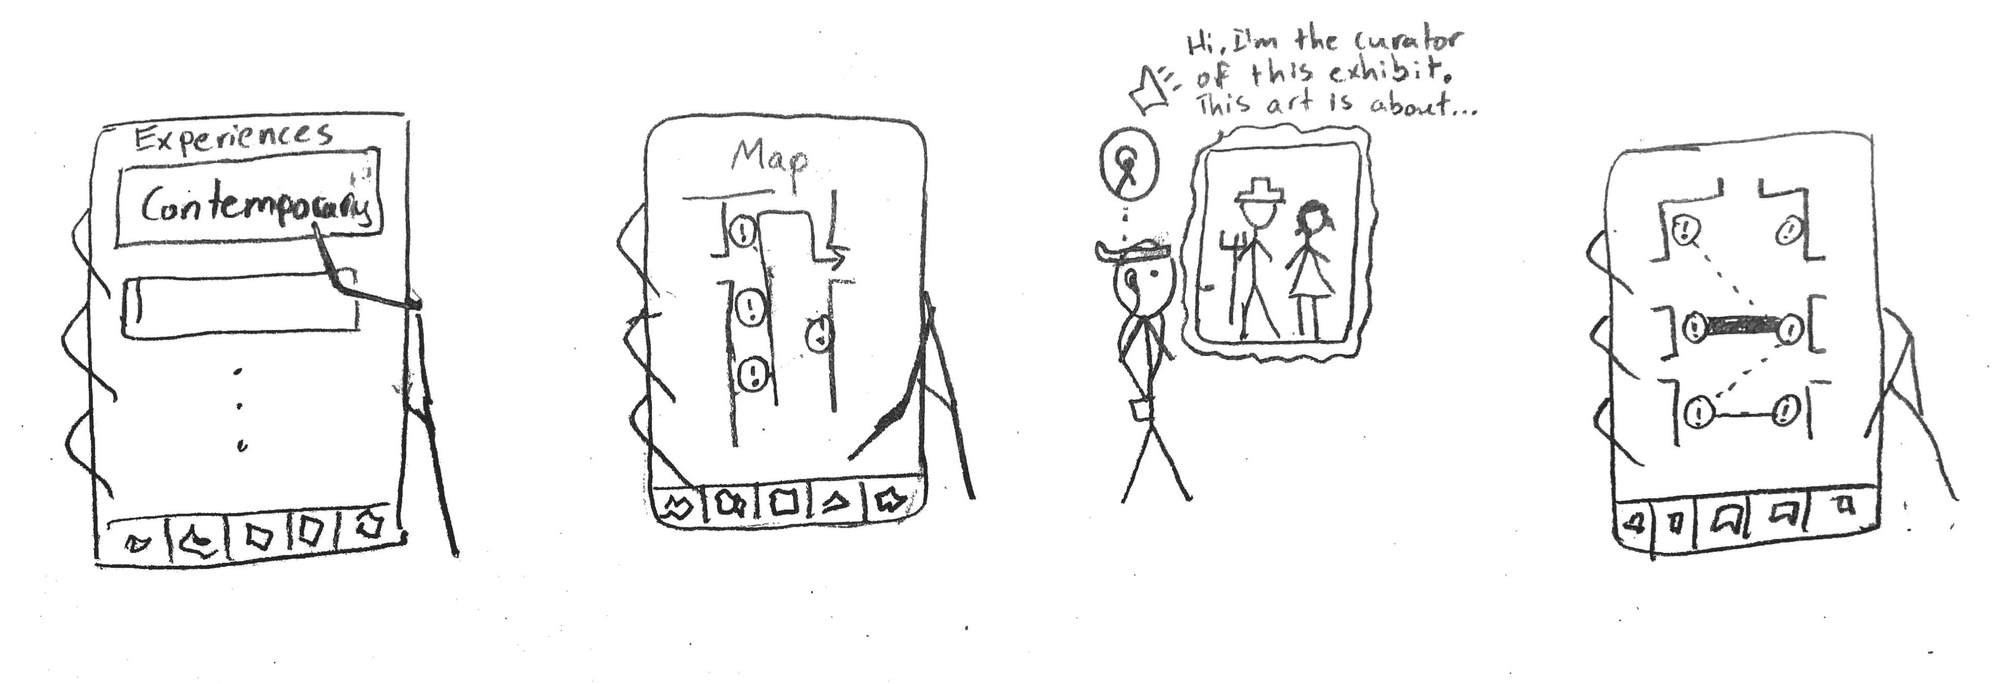 Experiences
Contemporary
Map
!
!
!
!
Hi, I'm the curator
of this exhibit.
This art is about...
!
!
!
!
!
!